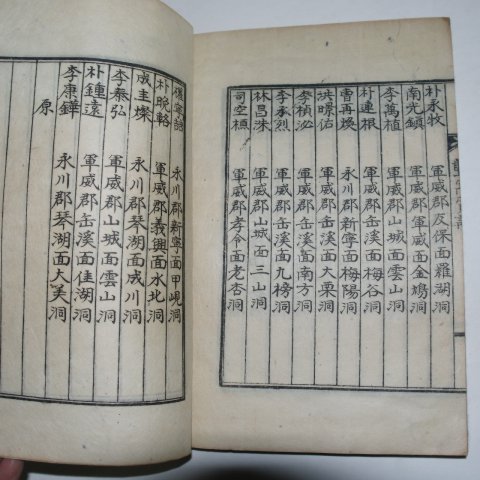 朴永牧 軍威郡友保面羅湖洞
南光鎮 軍威郡軍威面金鳩洞
李萬植 軍威郡山城面雲山洞
朴連根 軍威郡缶溪面梅谷洞
曺再煥 永川郡新寧面梅陽洞
洪暻佑 軍威郡缶溪面大栗洞
李楨泌 軍威郡缶溪面南方洞
李承烈 軍威郡缶溪面九榜洞
林昌洙 軍威郡山城面三山洞
司空槓 軍威郡孝令面老杏洞
永川郡新寧面甲峴洞
朴晼緒 軍威郡義興面水北洞
成圭燦 永川郡琴湖面成川洞
李泰弘 軍威郡山城面雲山洞
朴鍾遠 軍威郡缶溪面佳湖洞
李康鏵 永川郡琴湖面大美洞
原